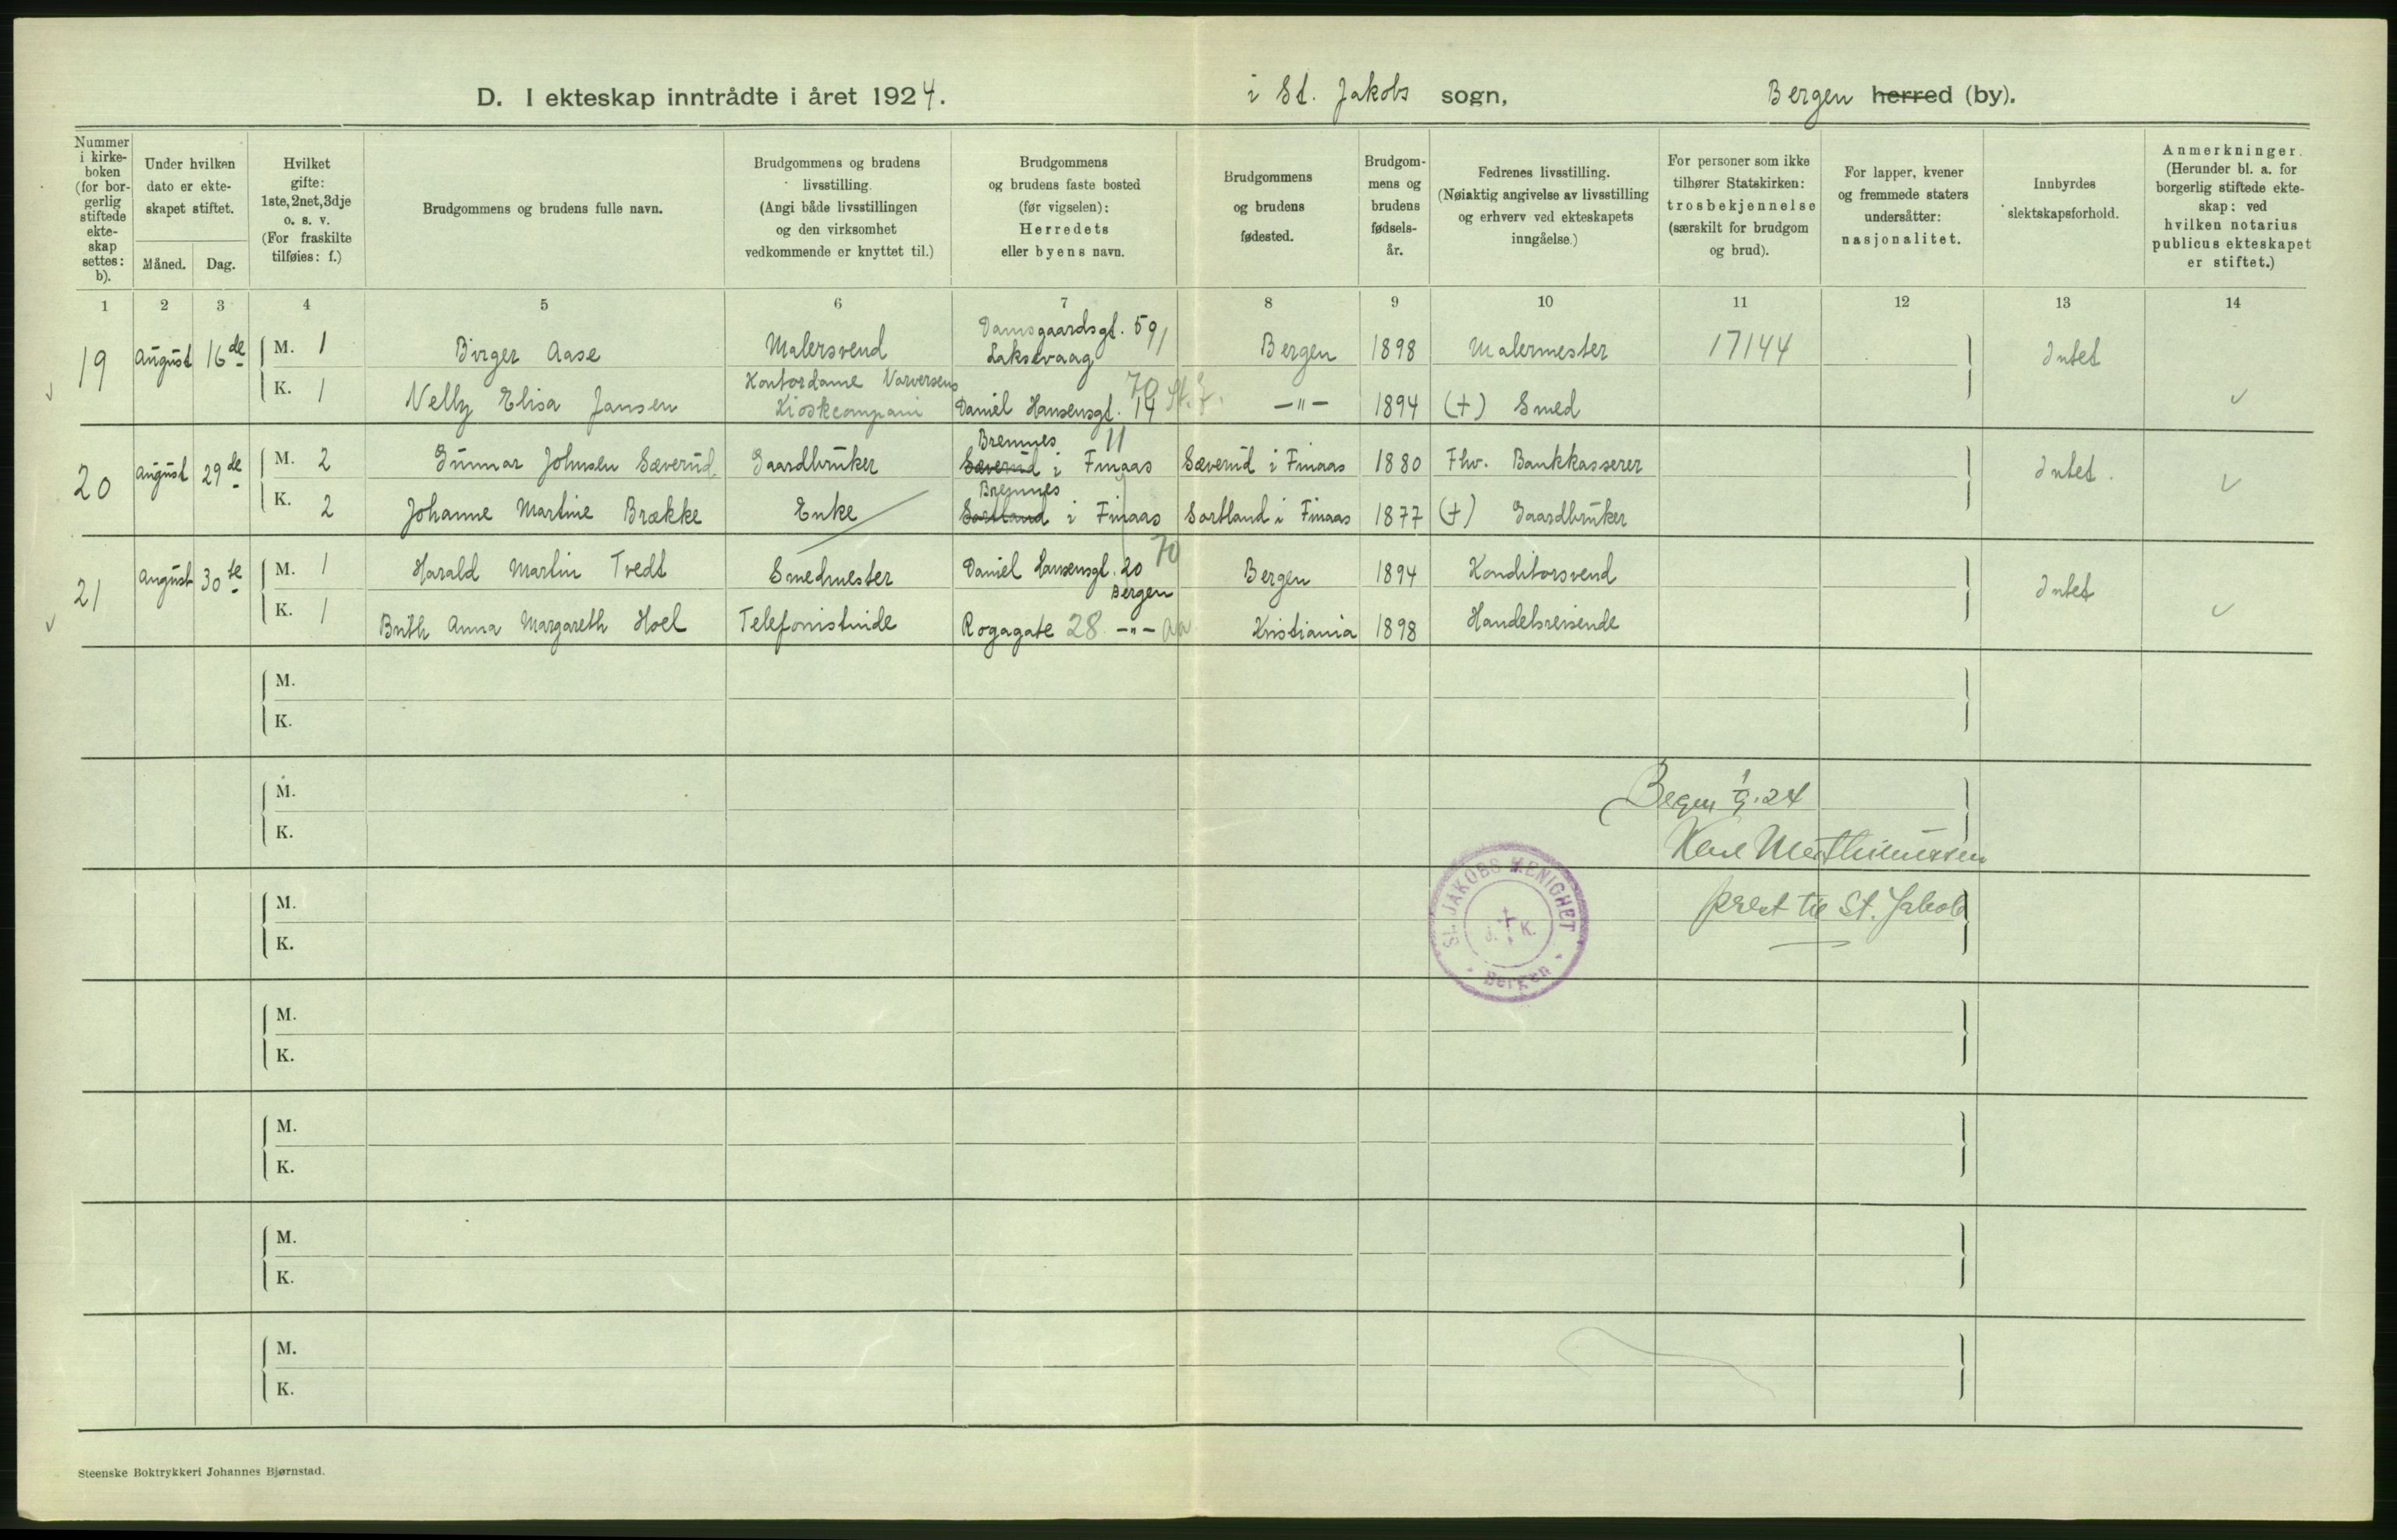 D. I ekteskap inntrådte i året 1924. i St. Jakobs sogn, Bergen herred (by).
Nummer i kirkeboken (for borgerlig stiftede ekteskap settes: b).
Under hvilken dato er ekteskapet stiftet.
Måned. Dag.
Hvilket gifte: 1ste, 2net, 3dje o. s. v. (For fraskilte tilføies: f.)
Brudgommens og brudens fulle navn.
Brudgommens og brudens livsstilling. (Angi både livsstillingen og den virksomhet vedkommende er knyttet til.)
Brudgommens og brudens faste bosted (før vigselen): Herredets eller byens navn.
Brudgommens og brudens fødested.
Brudgommens og brudens fødselsår.
Fedrenes livsstilling. (Nøiaktig angivelse av livsstilling og erhverv ved ekteskapets inngåelse.)
For personer som ikke tilhører Statskirken: trosbekjennelse (særskilt for brudgom og brud).
For lapper, kvener og fremmede staters undersåtter: nasjonalitet.
Innbyrdes slektskapsforhold.
Anmerkninger. (Herunder bl. a. for borgerlig stiftede ekteskap: ved hvilken notarius publicus ekteskapet er stiftet.)
1 2 3 4 5 6 7 8 9 10 11 12 13 14
Damsgaardsgt. 59
19 August 16de M. 1 Birger Aase Malersvend Laksevaag Bergen 1898 Malermester 17144 Intet
Kontordame Narvesens 70
K. 1 Nelly Elisa Jansen Kioskcompani Daniel Hansensgt. 14 St. J. —"— 1894 (+) Smed
Bremnes 11
20 August 29de M. 2 Gunnar Johnsen Sæverud Gaardbruker Sæverud i Finaas Sæverud i Finaas 1880 Fhv. Bankkasserer Intet.
Bremnes
K. 2 Johanne Martine Brække Enke Sortland i Finaas Sortland i Finaas 1877 (+) Gaardbruker
70
21 August 30te M. 1 Harald Martin Tvedt Smedmester Daniel Hansensgt. 20 Bergen 1894 Konditorsvend Intet
Bergen
K. 1 Buth Anna Margareth Hoel Telefonistinde Rogagate 28 —"— Kristiania 1898 Handelsreisende
M.
K.
M.
Bergen 1/9.24
K.
Karl Mathiesen
M.
prest til St. Jakob
K.
St. JAKOBS MENIGHET
J. K.
Bergen
M.
K.
M.
K.
M.
K.
M.
K.
Steenske Boktrykkeri Johannes Bjørnstad.